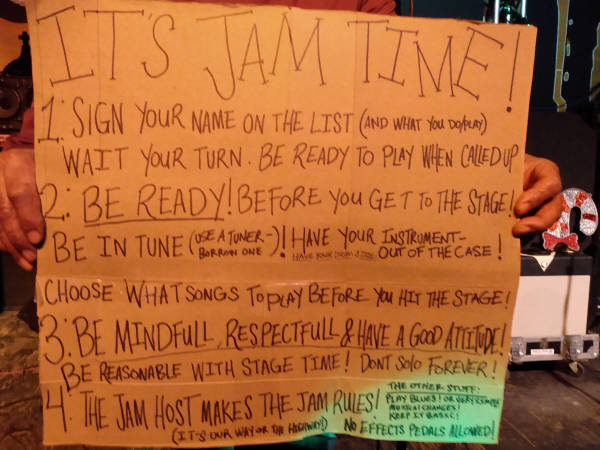 IT'S JAM TIME!
1: SIGN YOUR NAME ON THE LIST (AND WHAT YOU DO/PLAY)
WAIT YOUR TURN. BE READY TO PLAY WHEN CALLED UP
2: BE READY! BEFORE YOU GET TO THE STAGE!
BE IN TUNE (USE A TUNER-BORROW ONE)! HAVE YOUR INSTRUMENT-OUT OF THE CASE!
HAVE YOUR DRUM STICKS
CHOOSE WHAT SONGS TO PLAY BEFORE YOU HIT THE STAGE!
3: BE MINDFULL, RESPECTFULL & HAVE A GOOD ATTITUDE!
BE REASONABLE WITH STAGE TIME! DONT SOLO FOREVER!
4: THE JAM HOST MAKES THE JAM RULES!
(IT'S OUR WAY OR THE HIGHWAY!)
THE OTHER STUFF:
PLAY BLUES! OR VERY SIMPLE
MUSICAL CHANGES!
KEEP IT BASIC!
NO EFFECTS PEDALS ALLOWED!